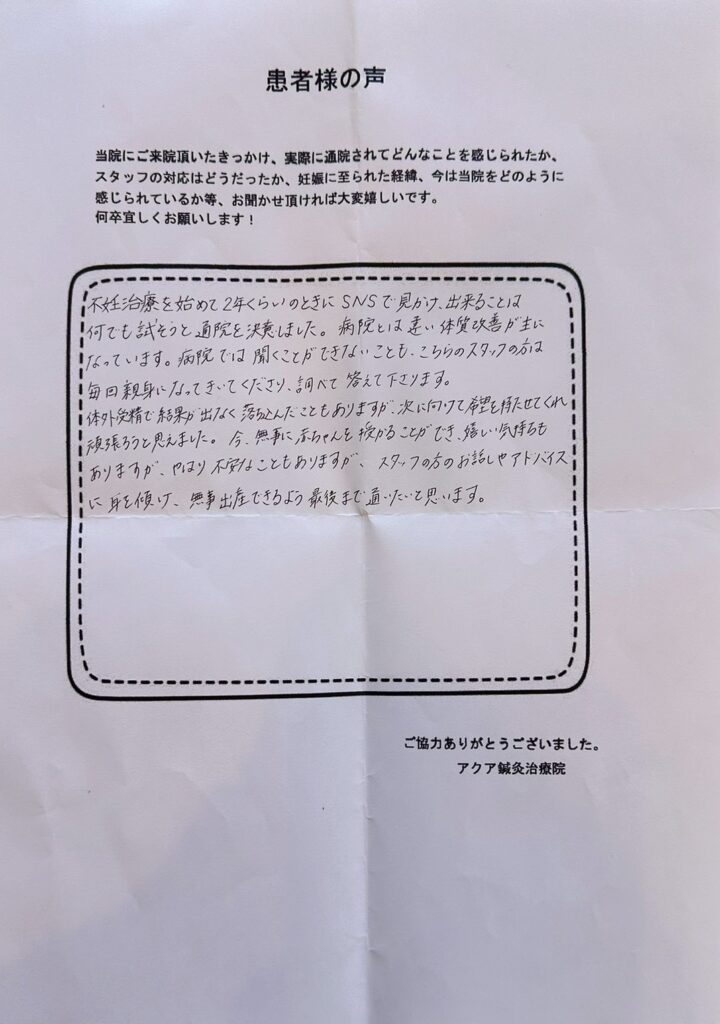 患者様の声
当院にご来院頂いたきっかけ、実際に通院されてどんなことを感じられたか、
スタッフの対応はどうだったか、妊娠に至られた経緯、今は当院をどのように
感じられているか等、お聞かせ頂ければ大変嬉しいです。
何卒宜しくお願いします！
不妊治療を始めて2年くらいのときにSNSで見かけ、出来ることは
何でも試そうと通院を決意しました。病院とは違い体質改善が主に
なっています。病院では聞くことができないことも、こちらのスタッフの方は
毎回親身になってきいてくださり、調べて答えて下さります。
体外受精で結果が出なく落ち込んだこともありますが、次に向けて希望を持たせてくれ
頑張ろうと思えました。今、無事に赤ちゃんを授かることができ、嬉しい気持ちも
ありますが、やはり不安なこともありますが、スタッフの方のお話しやアドバイス
に耳を傾け、無事出産できるよう最後まで通いたいと思います。
ご協力ありがとうございました。
アクア鍼灸治療院